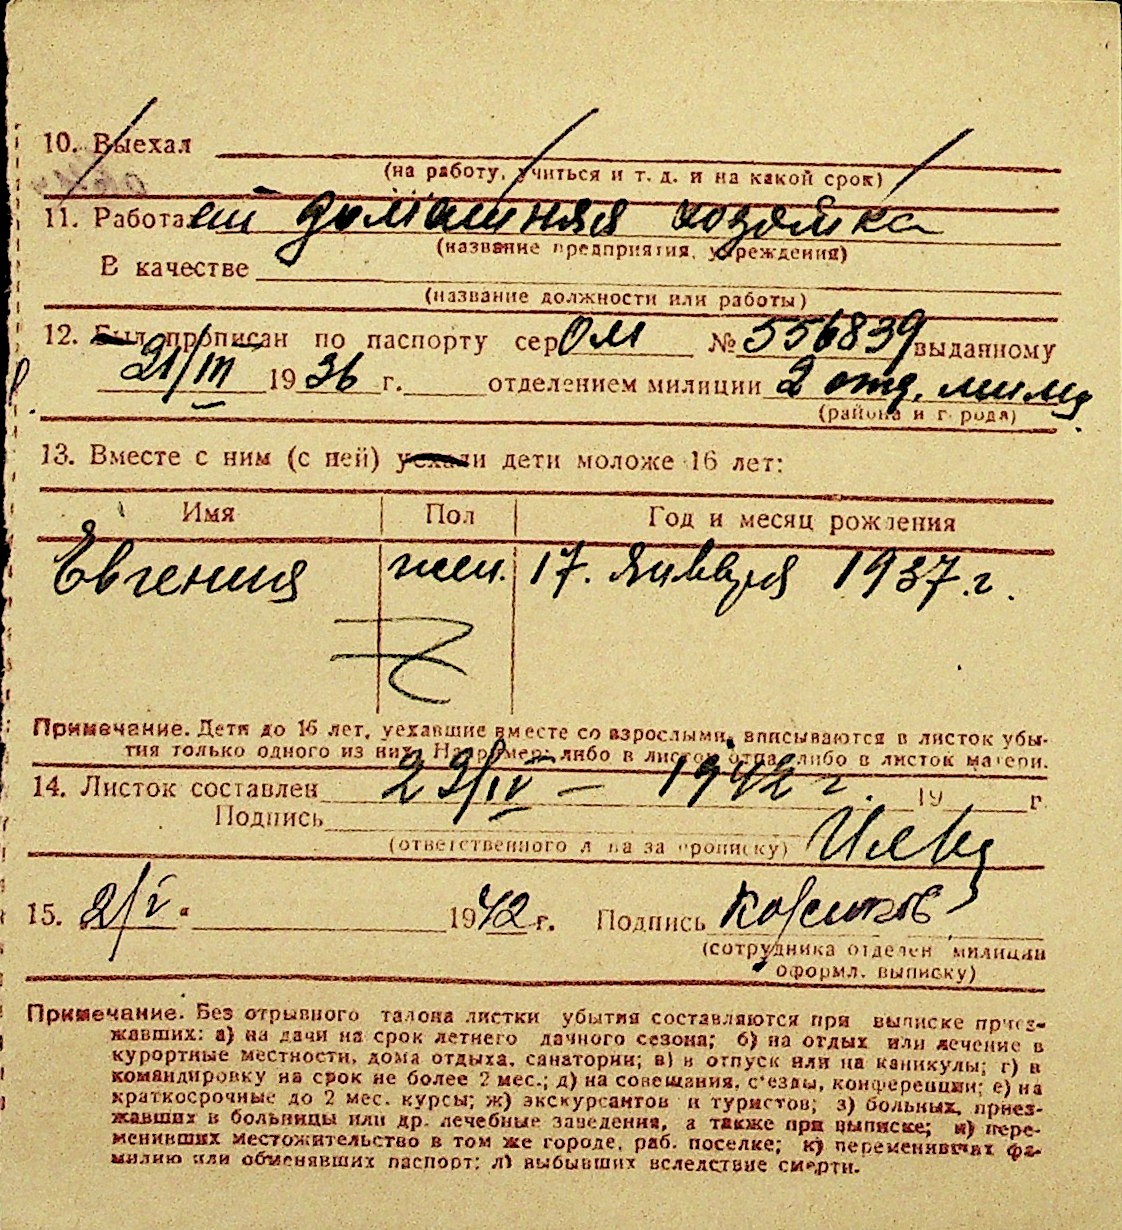 10. Выехал
(на работу, учиться и т. д. и на какой срок)
11. Работает домашняя хозяйка
(название предприятия, учреждения)
В качестве
(название должности или работы)
12. Был прописан по паспорту сер ОМ № 556839 выданному
21/III 1936 г. отделением милиции 2 отд. милиц
(района и города)
13. Вместе с ним (с ней) уехали дети моложе 16 лет:
Имя Пол Год и месяц рождения
Евгения жен. 17. Января 1937. г.
Примечание. Дети до 16 лет, уехавшие вместе со взрослыми, вписываются в листок убы-
тия только одного из них. Например: либо в листок отца, либо в листок матери.
14. Листок составлен 29/IV - 1942 г. 19 г.
Подпись
(ответственного лица за прописку)
15. 2/V. 1942 г. Подпись
(сотрудника отделен милиции
оформл. выписку)
Примечание. Без отрывного талона листки убытия составляются при выписке приез-
жавших: а) на дачи на срок летнего дачного сезона; б) на отдых или лечение в
курортные местности, дома отдыха, санатории; в) в отпуск или на каникулы; г) в
командировку на срок не более 2 мес.; д) на совещания, с'езды, конференции; е) на
краткосрочные до 2 мес. курсы; ж) экскурсантов и туристов; з) больных, приез-
жавших в больницы или др. лечебные заведения, а также при выписке; и) пере-
менивших местожительство в том же городе, раб. поселке; к) переменивших фа-
милию или обменявших паспорт; л) выбывших вследствие смерти.